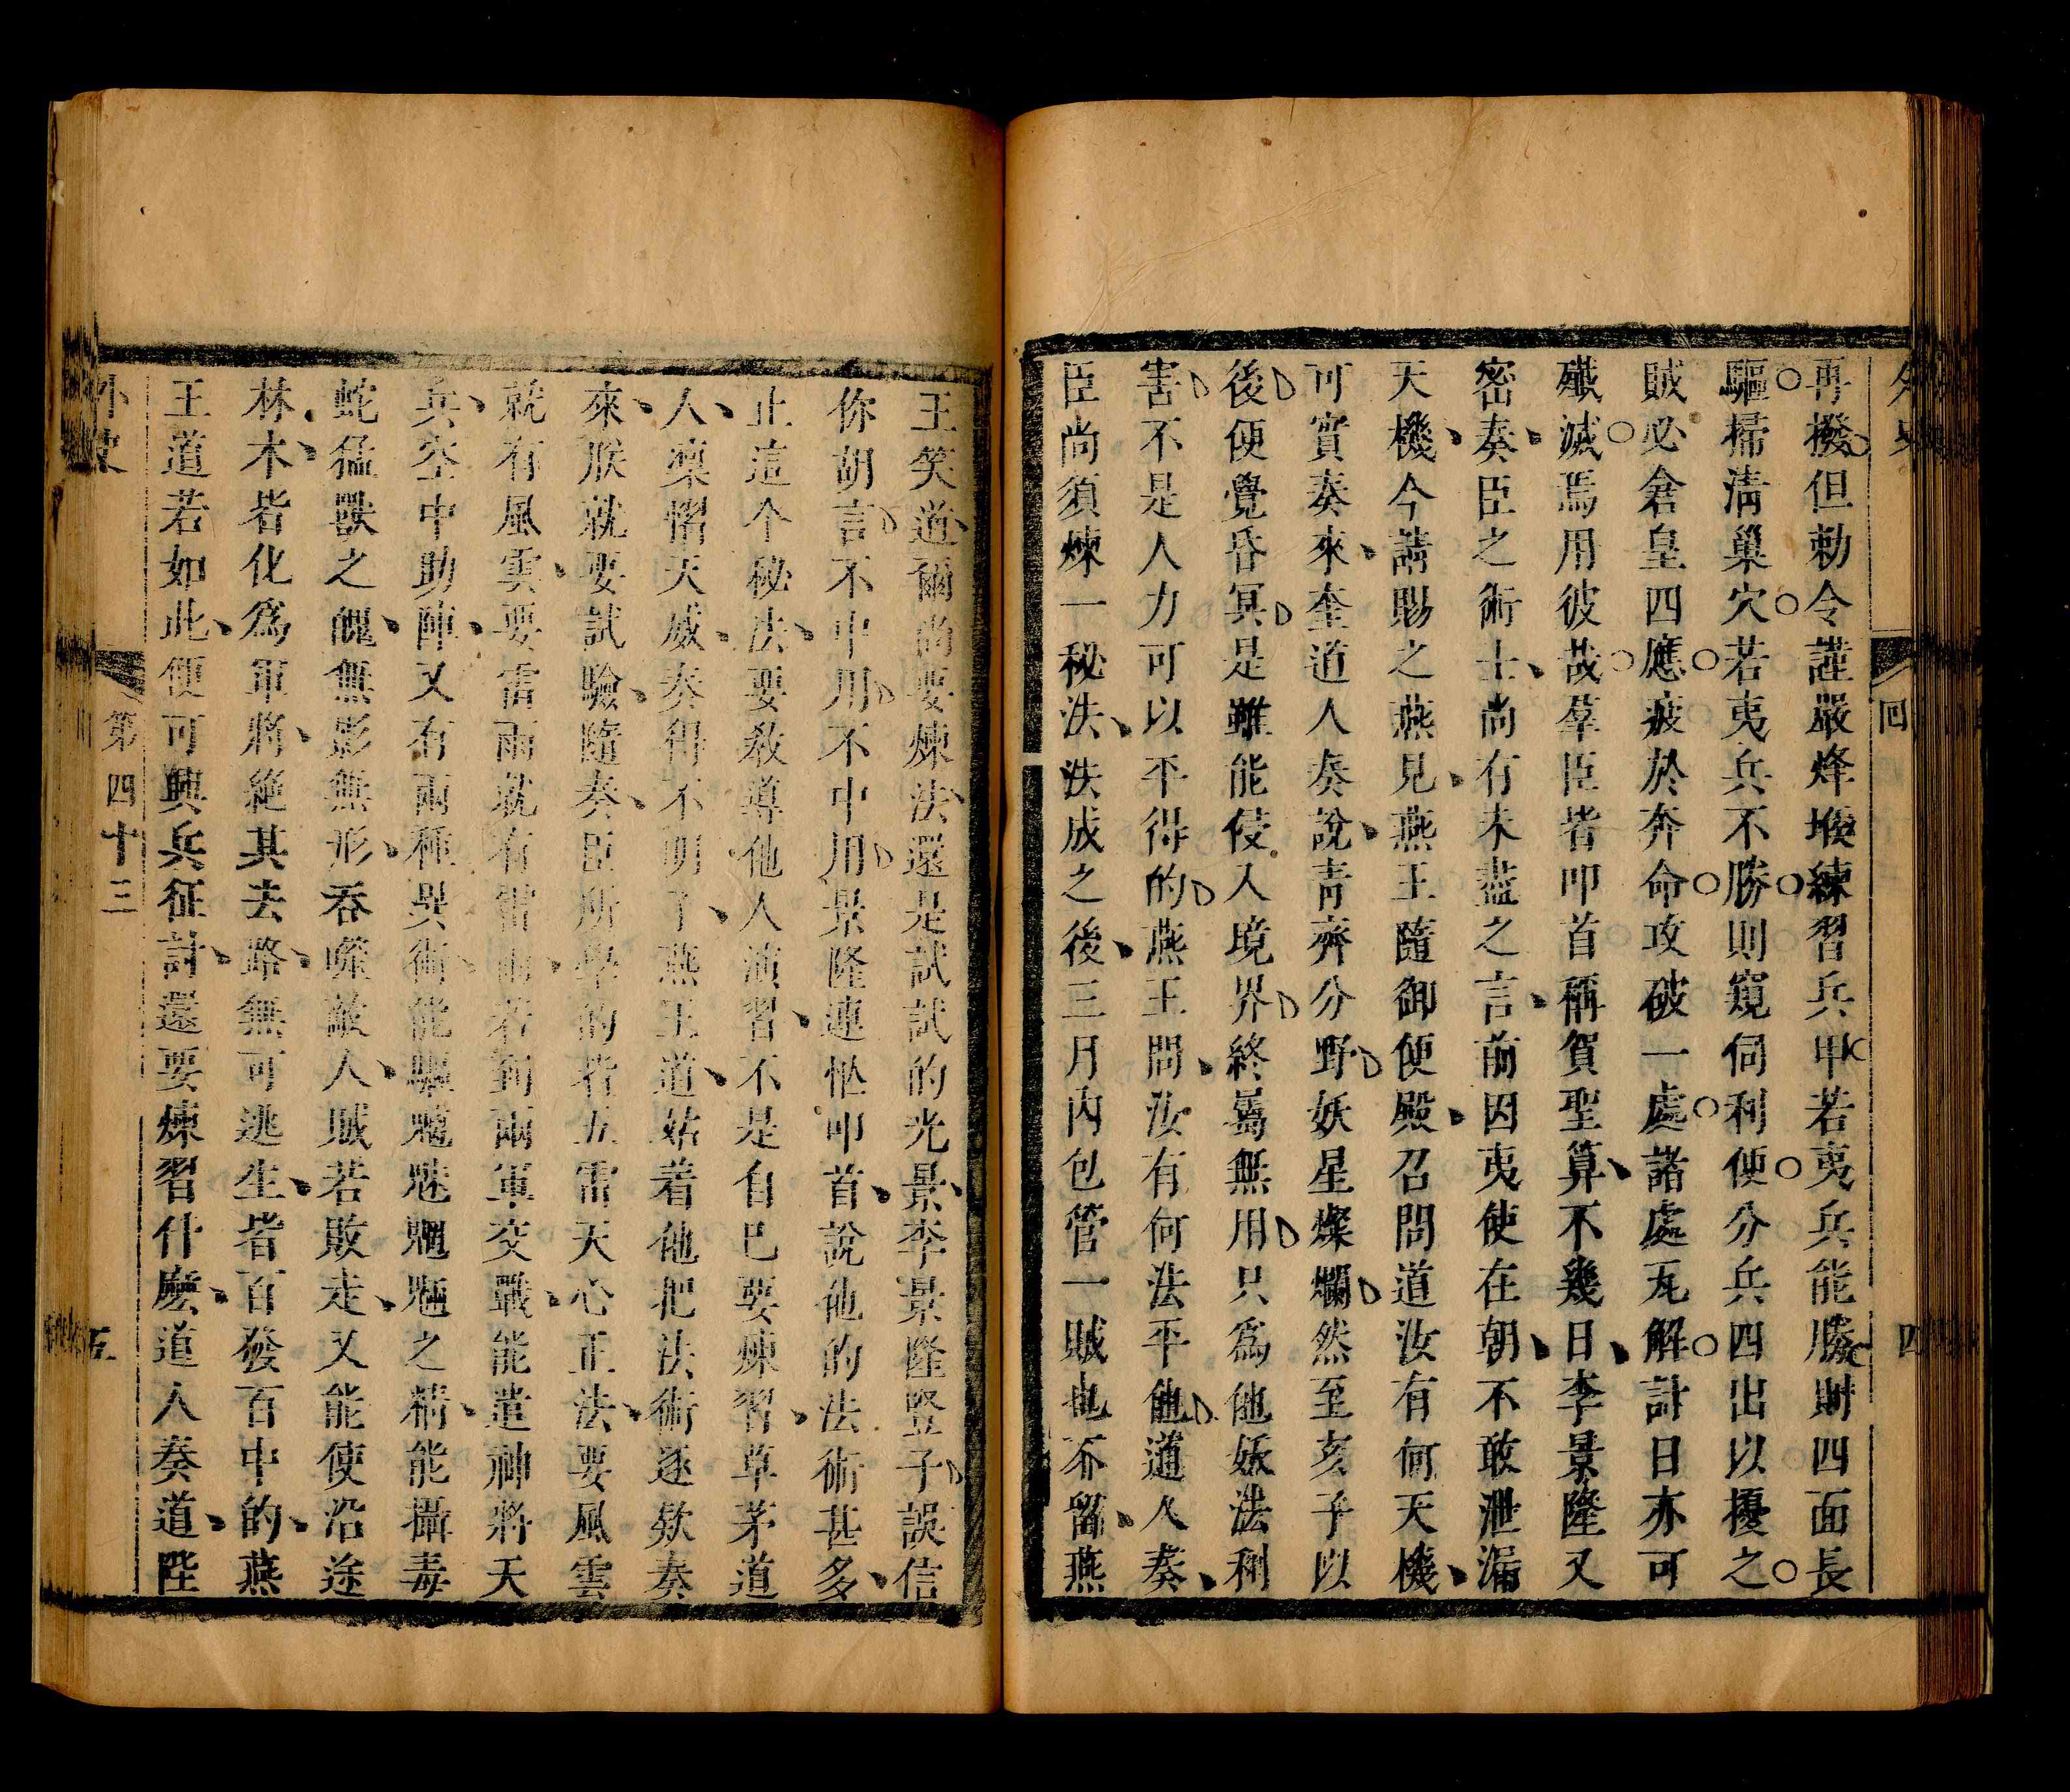 外史
回
四
再撥但勅令謹嚴烽堠練習兵甲若夷兵能勝財四面長
驅掃淸巢穴若夷兵不勝則窺伺利便分兵四出以擾之
賊必倉皇四應疲於奔命攻破一處諸處瓦解計日亦可
殲滅焉用彼哉羣臣皆叩首稱賀聖算不幾日李景隆又
密奏臣之術士尚有未盡之言前因夷使在朝不敢泄漏
天機今請賜之燕見燕王隨御便殿召問道汝有何天機
可實奏來奎道人奏說靑齊分野妖星燦爛然至亥子以
後便覺昏冥是雖能侵入境界終爲無用只爲他妖法利
害不是人力可以平得的燕王問汝有何法平他道人奏
臣尚須煉一秘法法成之後三月内包管一賊也不留燕
王笑道爾尚要煉法還是試試的光景李景隆竪子誤信
你胡言不中用不中用景隆連忙叩首說他的法術甚多
止這个秘法要敎導他人演習不是自已要煉習草茅道
人稟慴天威奏得不明了燕王道姑着他把法術逐欵奏
來朕就要試驗隨奏臣所學的皆五雷天心正法要風雲
就有風雲要雷雨就有雷雨若到兩軍交戰能遣神將天
兵空中助陣又有兩種異術能驅魑魅魍魎之精能攝毒
蛇猛獸之魄無影無形吞噬敵人賊若敗走又能使沿途
林木皆化爲軍將絶其去路無可逃生皆百發百中的燕
王道若如此便可興兵征討還要煉習什麽道人奏道陛
外史
第四十三
五